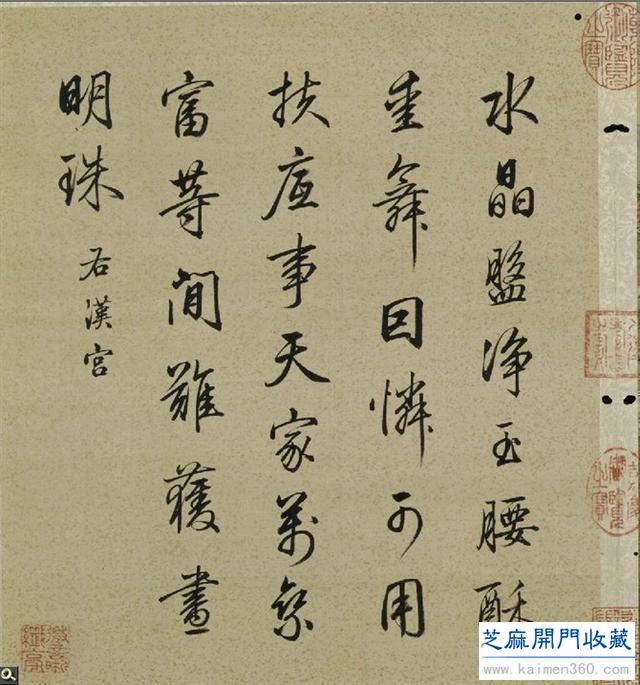 水晶盤淨玉腰酥
舞回憐可用
扶底事天家萬乘
富等閒難獲畫
明珠 右漢宮
芝麻開門收藏
www.kaimen360.com